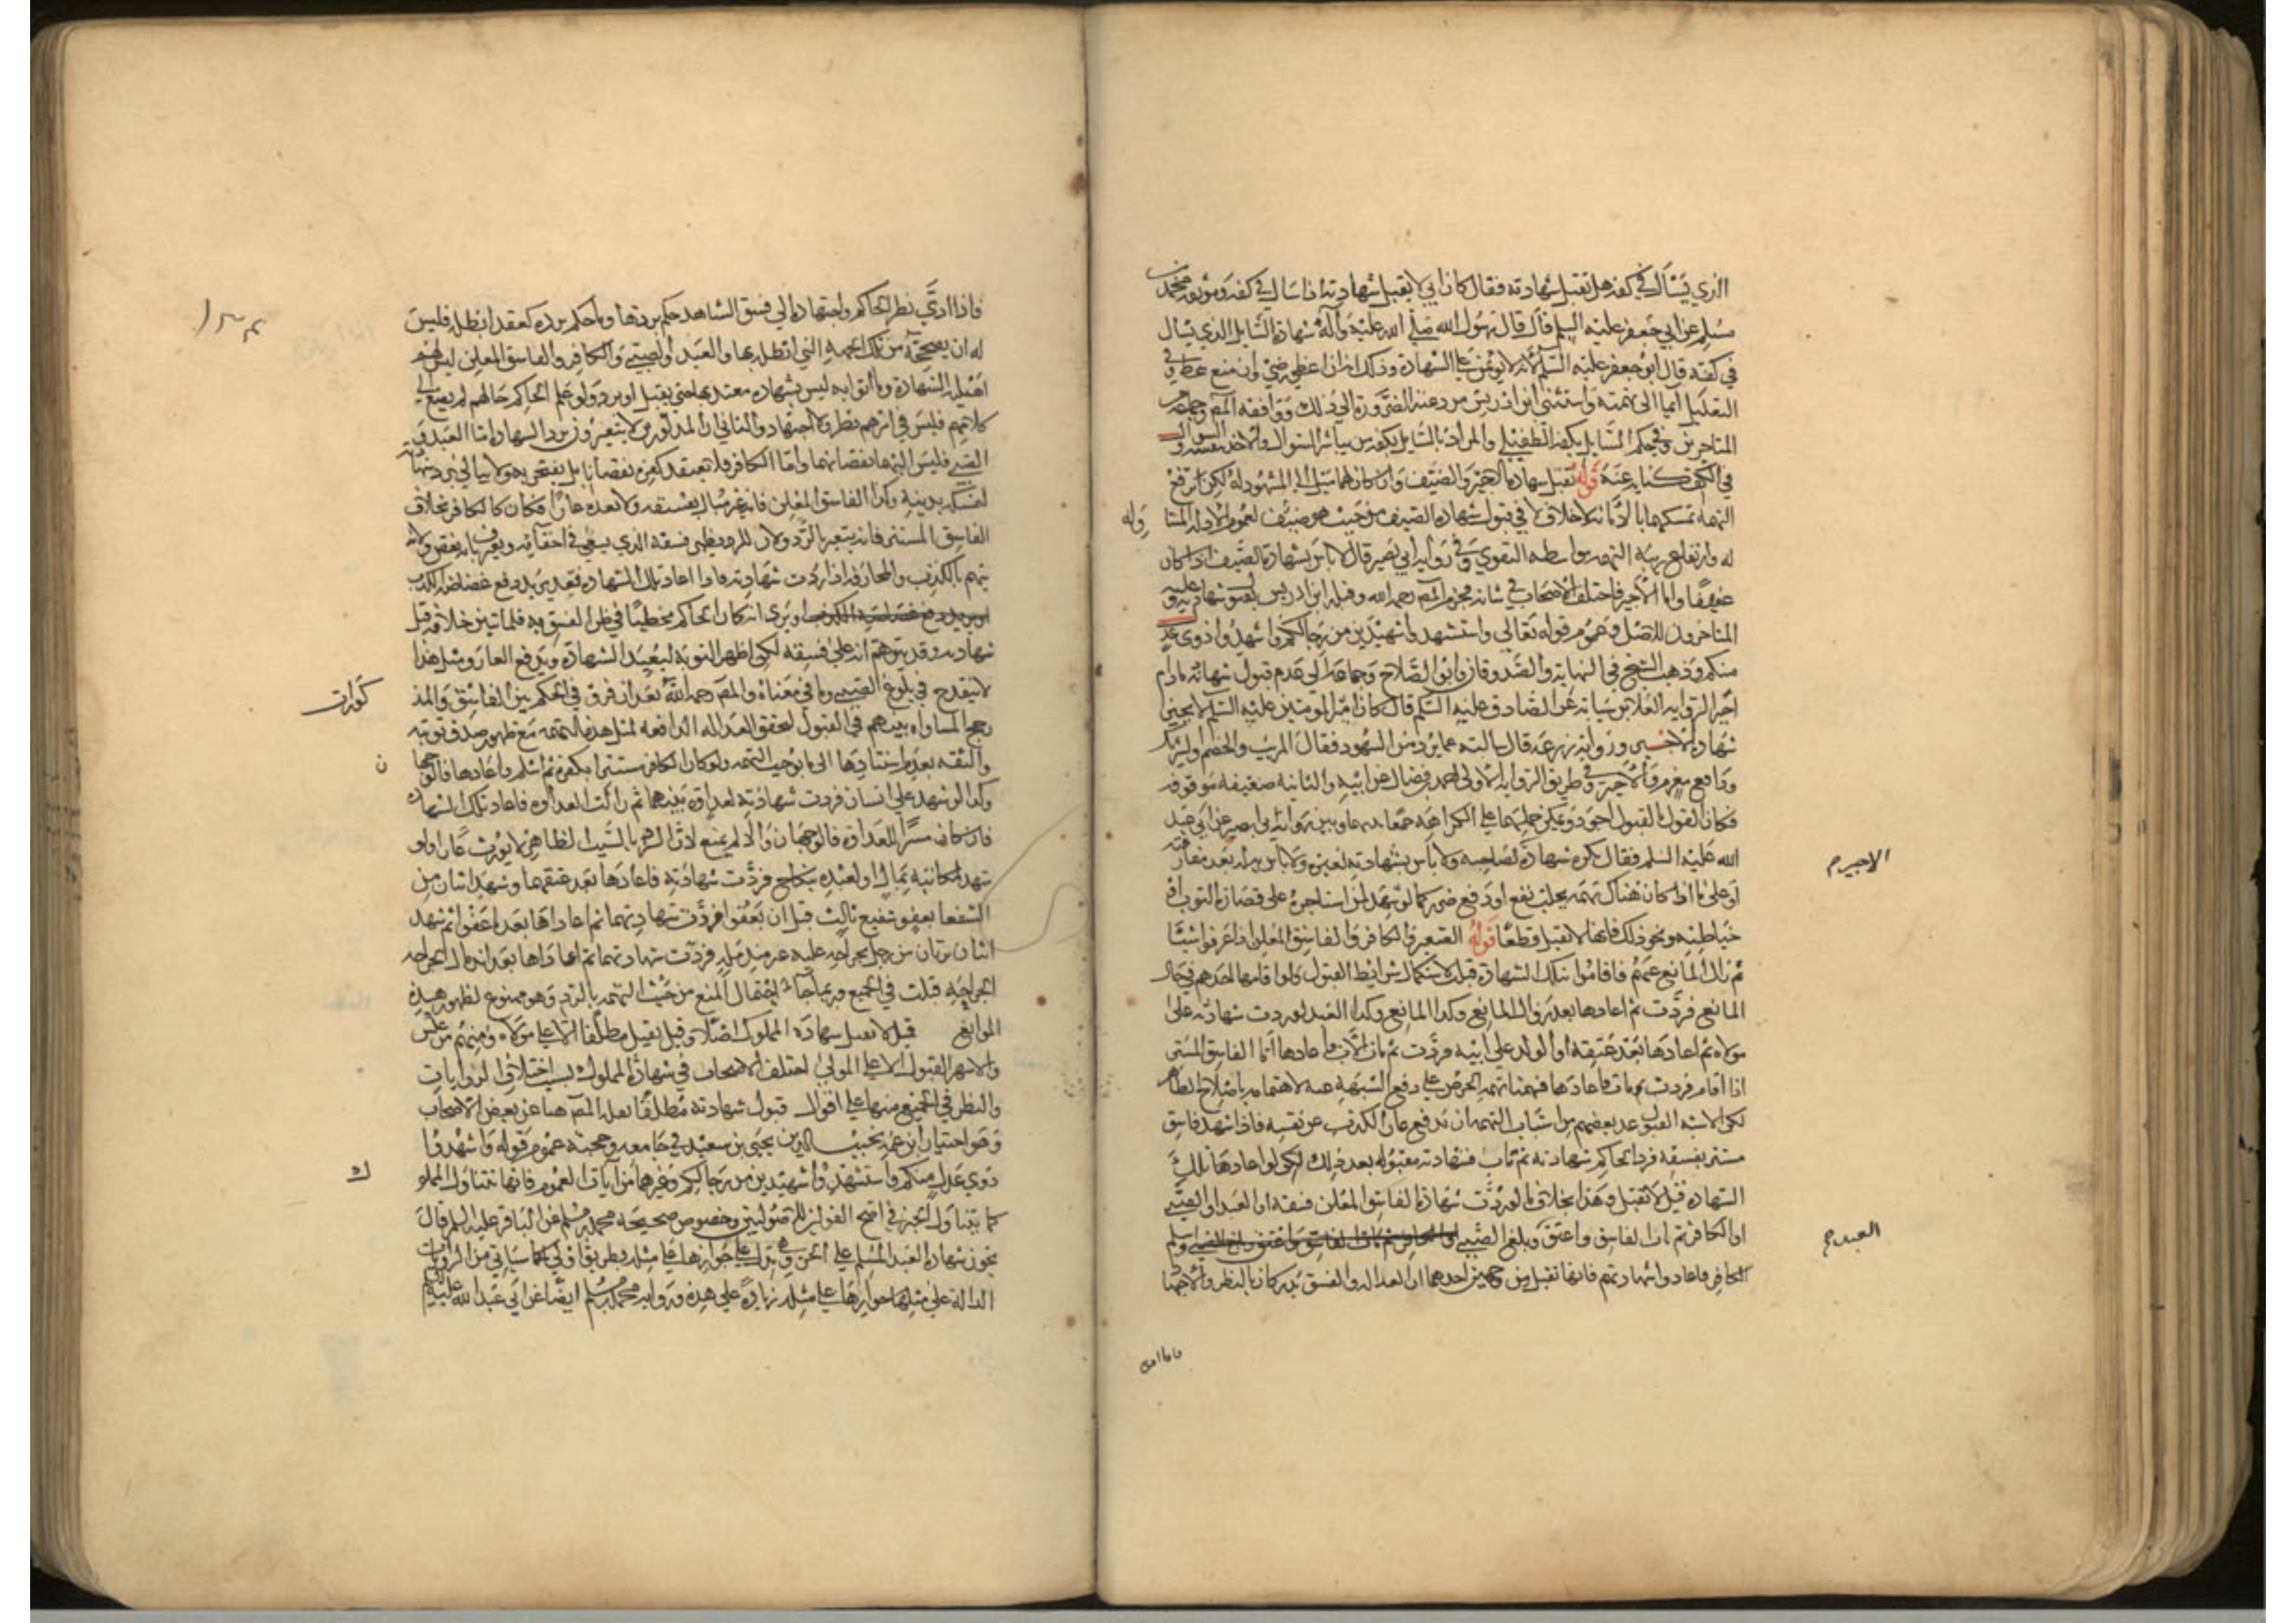 الذي يسأل في كفه هل تقبل شهادته فقال كان ابي لا يقبل شهادته اذا سال في كفه وموثقة محمد بن
مسلم عن ابي جعفر عليه السلم قال قال رسول الله صلى الله عليه وآله شهادة السايل الذي يسال
في كفه قال ابو جعفر عليه السلم لانه لا يؤمن على الشهادة وذلك لانه ان اعطى رضي وان منع سخط وفي
التعليل ايماء الى تهمته واستثنى ابن ادريس من دعته الضرورة الى ذلك ووافقه المصـ وجماعه
المتاخرين وفي حكم السايل بكفه الطفيلي والمراد بالسايل بكفه من يباشر السوال والاخذ بنفسه والسوال
في الكف كناية عنه قوله تقبل شهادة الاجير والضيف وان كان لهما ميل الى المشهود له لكن يرفع
التهمة تمسكهما بالامانة لا خلاف في قبول شهادة الضيف من حيث هو ضيف لعموم الادلة المتنا
وله
له وارتفاع ريبة التهمه بواسطه التقوى وفي رواية ابي بصير قال لا باس بشهادة الضيف اذا كان
عفيفا واما الاجير فاختلف الاصحاب في شانه فجزم المصـ رحمه الله وقبله ابن ادريس بقبول شهادته وعليه
المتاخرون للاصل وعموم قوله تعالى واستشهدوا شهيدين من رجالكم واشهدوا ذوي عدل
منكم وذهب الشيخ في النهاية والصدوقان وابو الصلاح وجماعة الى عدم قبول شهادته ما دام
اجيرا لرواية العلا بن سيابة عن الصادق عليه السلم قال كان امير المومنين عليه السلم لا يجيز
شهادة الاجير ورواية زرعة قال سالته عما يرد من الشهود فقال المريب والخصم والشريك
ودافع مغرم والاجير وفي طريق الرواية الاولى احمد بن فضال عن ابيه والثانية ضعيفة موقوفه
فكان القول بالقبول اجود ويمكن حملهما على الكراهة جمعا بينهما وبين رواية ابي بصير عن ابي عبد
الله عليه السلم فقال يكره شهادة لصاحبه ولا باس بشهادته لغيره ولا باس به له بعد مفارقته
الاجير م
او على ما اذا كان هناك تهمة بجلب نفع او دفع ضرر كما لو شهد لمن استاجره على قصارة الثوب او
خياطته ونحو ذلك فانها لا تقبل قطعا قوله الصغير والكافر والفاسق المعلن اذا عرفوا شيئا
ثم زال المانع عنهم فاقاموا بتلك الشهادة قبلت لاستكمال شرايط القبول ولو اقامها احدهم في حال
المانع فردت ثم اعادها بعد زوال المانع وكذا المانع وكذا العبد لو ردت شهادته على
مولاه ثم اعادها بعد عتقه او الولد على ابيه فردت ثم مات الاب واعادها اما الفاسق المستتر
اذا اقام فردت ثم تاب فاعادها فهنا تهمة الحرص على دفع الشبهة عنه لاهتمامه باصلاح الظاهر
لكن الاشبه القبول عد بعضهم من اسباب التهمه ان يدفع عار الكذب عن نفسه فاذا شهد فاسق
مستتر بفسقه فرد الحاكم شهادته ثم تاب فشهادته مقبوله بعد ذلك لكن لو اعادها تلك
الشهادة قيل لا تقبل وهذا بخلاف ما لو ردت شهادة الفاسق المعلن فسقه او العبد او الصبي
او الكافر ثم تاب الفاسق واعتق وبلغ الصبي واسلم
العبد م
الكافر فاعادوا شهادتهم فانها تقبل من جهتين احدهما ان العدالة والفسق يدركان بالنظر والاجتها
فاذا ادى
فاذا ادى نظر الحاكم واجتهاده الى فسق الشاهد حكم بردها وما حكم برده كعقد ابطله فليس
له ان يصححه من تلك الجهة التي ابطله بها والعبد والصبي والكافر والفاسق المعلن ليس لهم
اهلية الشهادة وما اتوا به ليس بشهادة معتد بها حتى يقبل او يرد ولو علم الحاكم حالهم لم يصغ الى
كلامهم فليس في امرهم نظر ولا اجتهاد والثاني ان المذكورين لا يتعيرون برد الشهادة اما العبد و
الصبي فليس اليهما نقصانهما واما الكافر فلا يعتقد كفره نقصانا بل يفتخر به ولا يبالي برد شهادته
لتمسكه بدينه وكذا الفاسق المعلن فانه غير مبال بفسقه ولا يعده عارا فكان كالكافر بخلاف
الفاسق المستتر فانه يتعير بالرد ولان الرد يظهر فسقه الذي يسعى في اخفائه ويعترف بانه نقص ولانه
يتهم بالكذب والمجازفة اذا ردت شهادته فاذا اعاد تلك الشهادة فقد يريد دفع غضاضة الكذب
ويرى انه كان الحاكم مخطئا في ظن الفسق به فلما تبين خلافه قبل
شهادته وقد يتوهم انه على فسقه لكن اظهر التوبة ليعيد الشهادة ويدفع العار ومثل هذا
لا يقدح في بلوغ الصبي وما في معناه والمصـ رحمه الله بعد ان فرق في الحكم بين الفاسق والمذ
كورات
رجح المساواه بينهم في القبول لتحقق العداله الدافعه لمثل هذه التهمه مع ظهور صدق توبته
والثقة بعدم استنادها الى ما يوجب التهمه ولو كان الكافر مستترا بكفره ثم اسلم واعادها فالوجها
ن
وكذا لو شهد على انسان فردت شهادته لعداوة بينهما ثم زالت العداوه فاعاد تلك الشهاده
فان كان مسرا للعداوة فالوجهان والا لم يمنع لان الرد بالسبب الظاهر لا يورث عارا ولو
شهد لمكاتبه بمال او لعبده بنكاح فردت شهادته فاعادها بعد عتقهما وشهد اثنان من
الشفعا بعفو شفيع ثالث قبل ان يعفوا فردت شهادتهما ثم اعاداها بعد ما عفوا ثم شهد
اثنان يرثان من رجل بجراحه عليه غير مندمله فردت شهادتهما ثم اعاداها بعد اندمال الجراحه
الجراحة قبلت في الجميع وربما جاء احتمال المنع من حيث التهمه بالرد وهو ممنوع لظهور هذه
الموانع قيل لا تقبل شهادة المملوك اصلا وقيل تقبل مطلقا الا على مولاه ومنهم من عكس
والاشهر القبول الا على المولى اختلف الاصحاب في شهادة المملوك بسبب اختلاف الروايات
والنظر في الجميع منها على اقوال قبول شهادته مطلقا نقله المصـ هنا عن بعض الاصحاب
وهو اختيار ابن عمه نجيب الدين يحيى بن سعيد في جامعه وحجته عموم قوله واشهدوا
ذوي عدل منكم واستشهدوا شهيدين من رجالكم وغيرهما من آيات العموم فانها تتناول المملو
ك
كما يتناول الحر في اصح القولين للاصوليين وخصوص صحيحة محمد بن مسلم عن الباقر عليه السلم قال
يجوز شهادة العبد المسلم على الحر ويدل على جوازها على مثله بطريق اولى كما سياتي من الروايات
الدالة على مثلها جوازها على مثله زيادة على هذه ورواية محمد بن مسلم ايضا عن ابي عبد الله عليه السلم